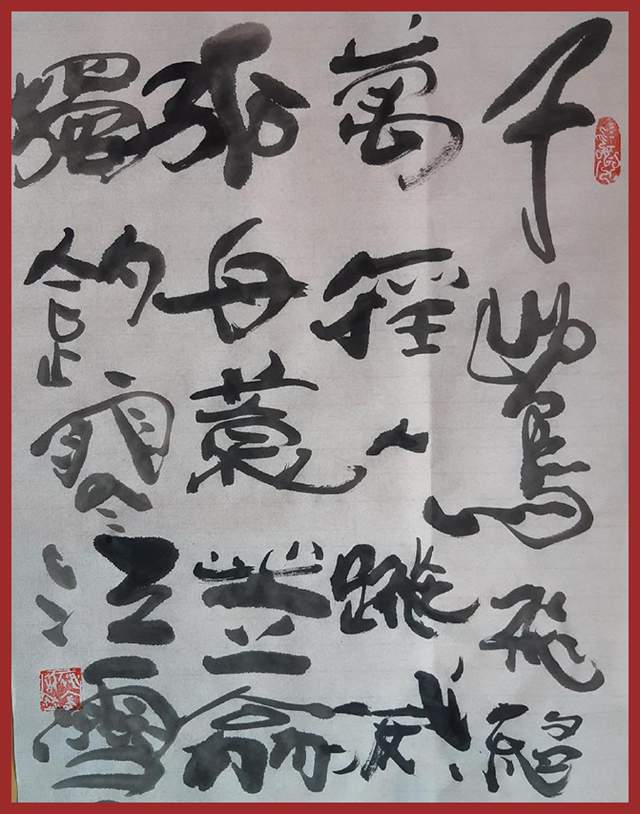 千山鳥飛絕
萬徑人蹤滅
孤舟蓑笠翁
獨釣寒江雪